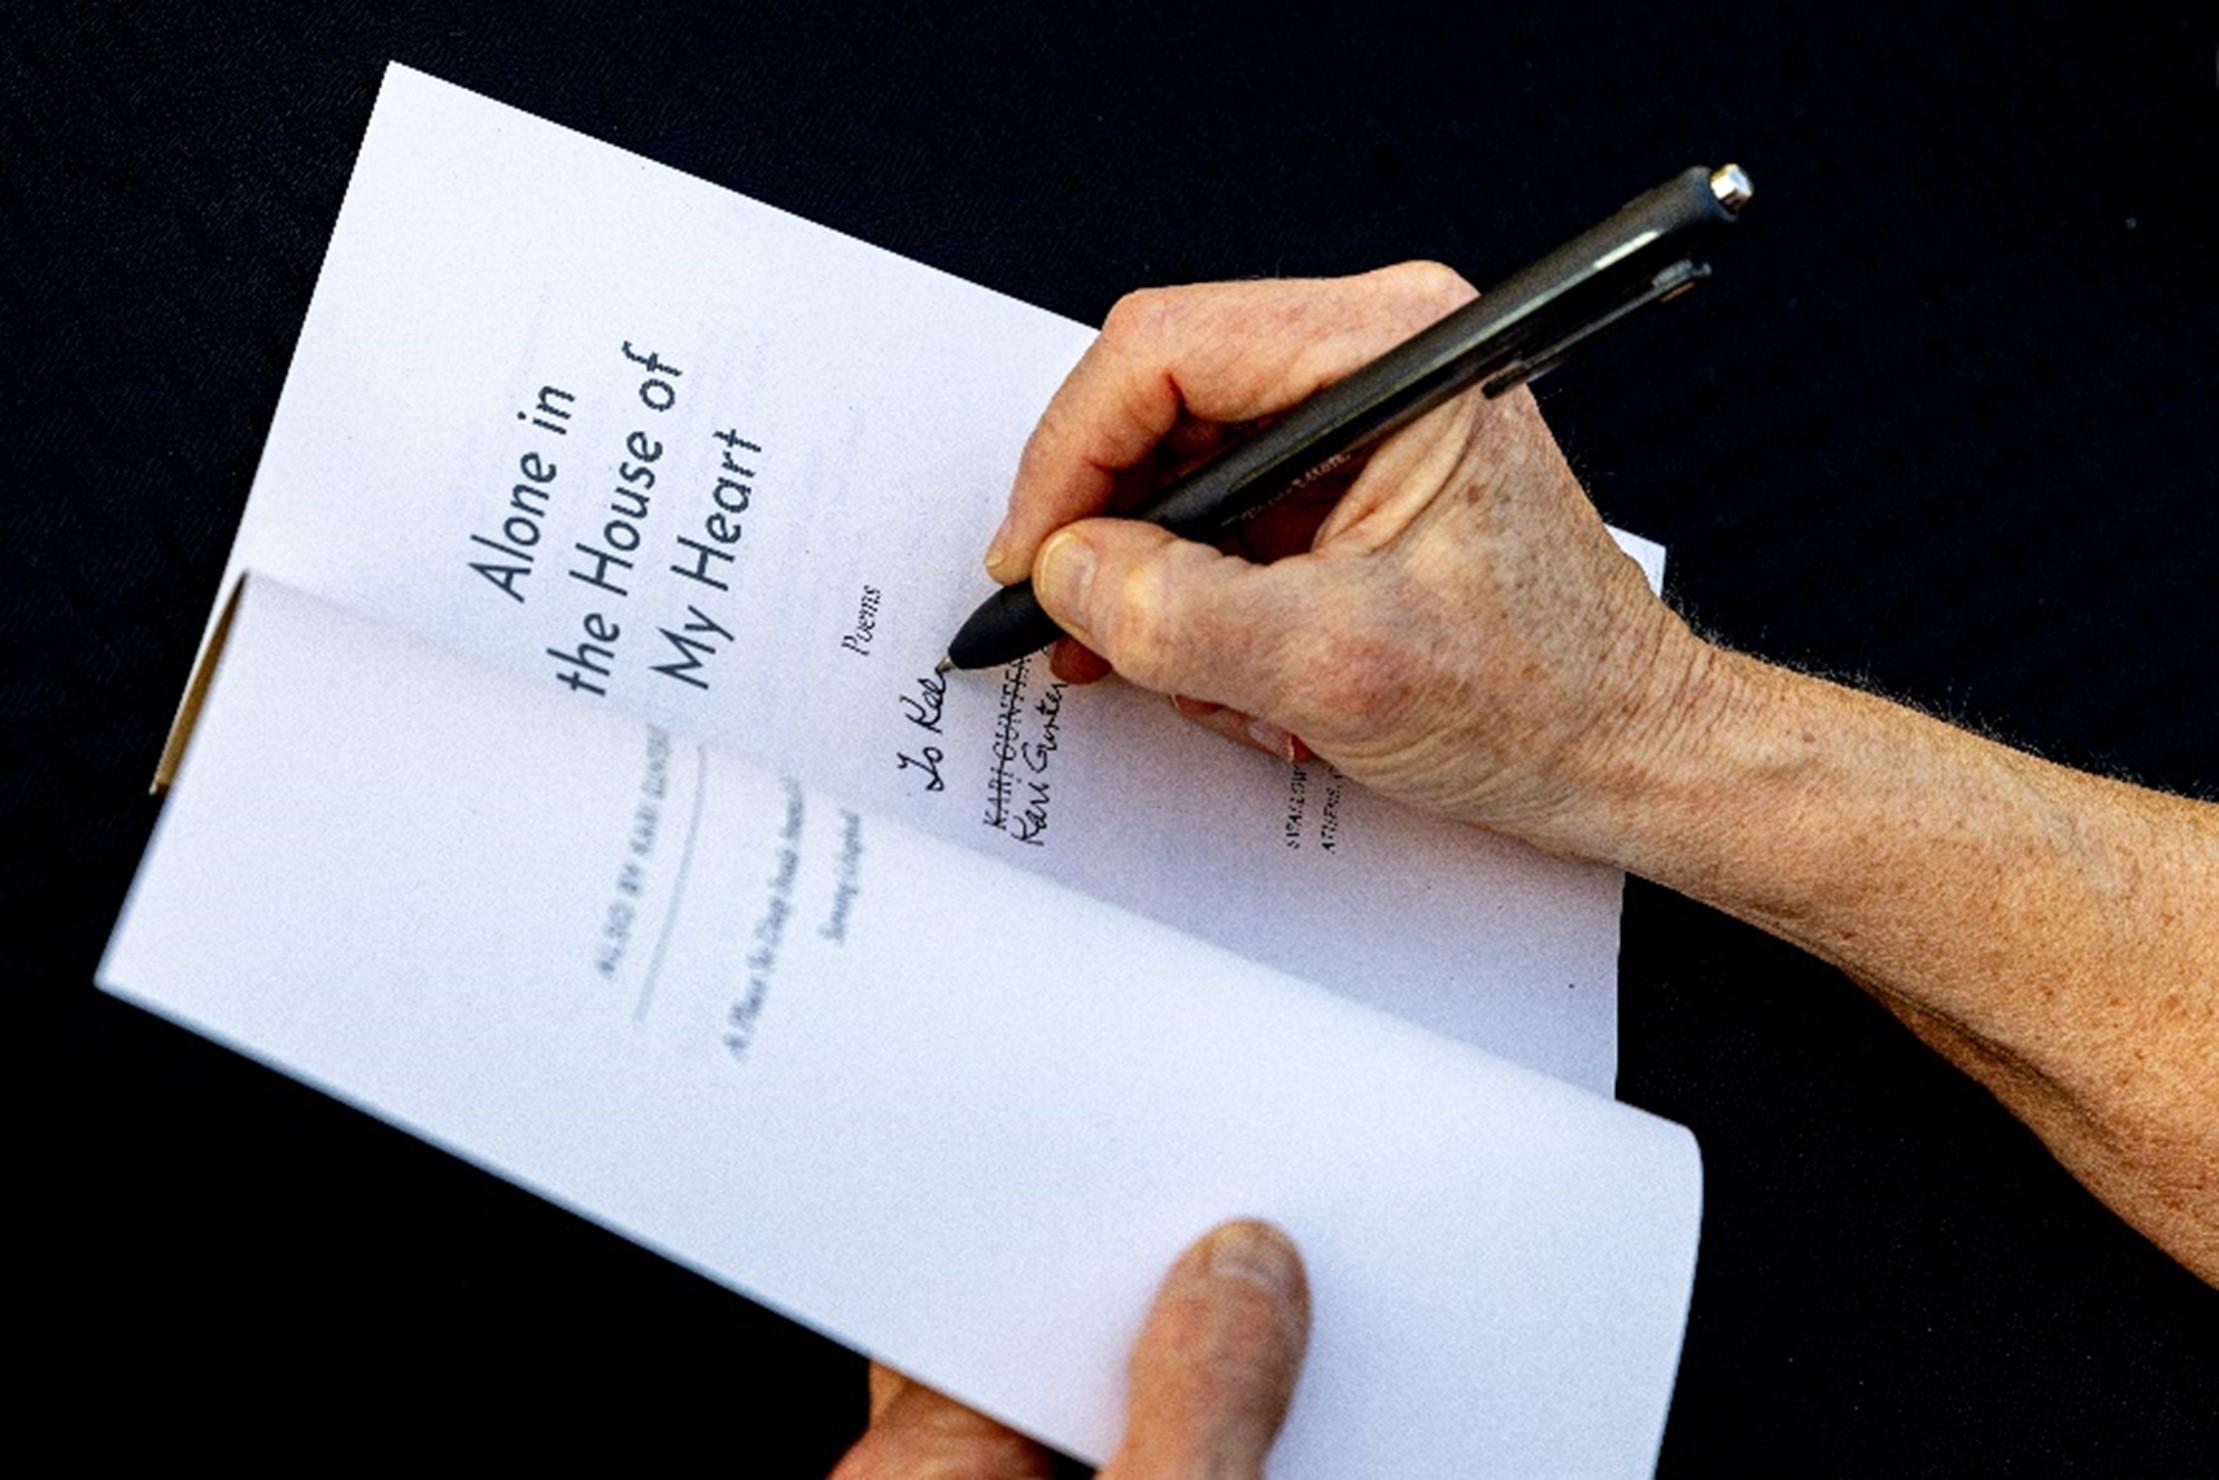 ALSO BY KARI GUNTER
A Place So Deep Inside
Alone in
the House of
My Heart
Poems
To
KARI GUNTER
Kari Gunter
SWALLOW
ATHENS,